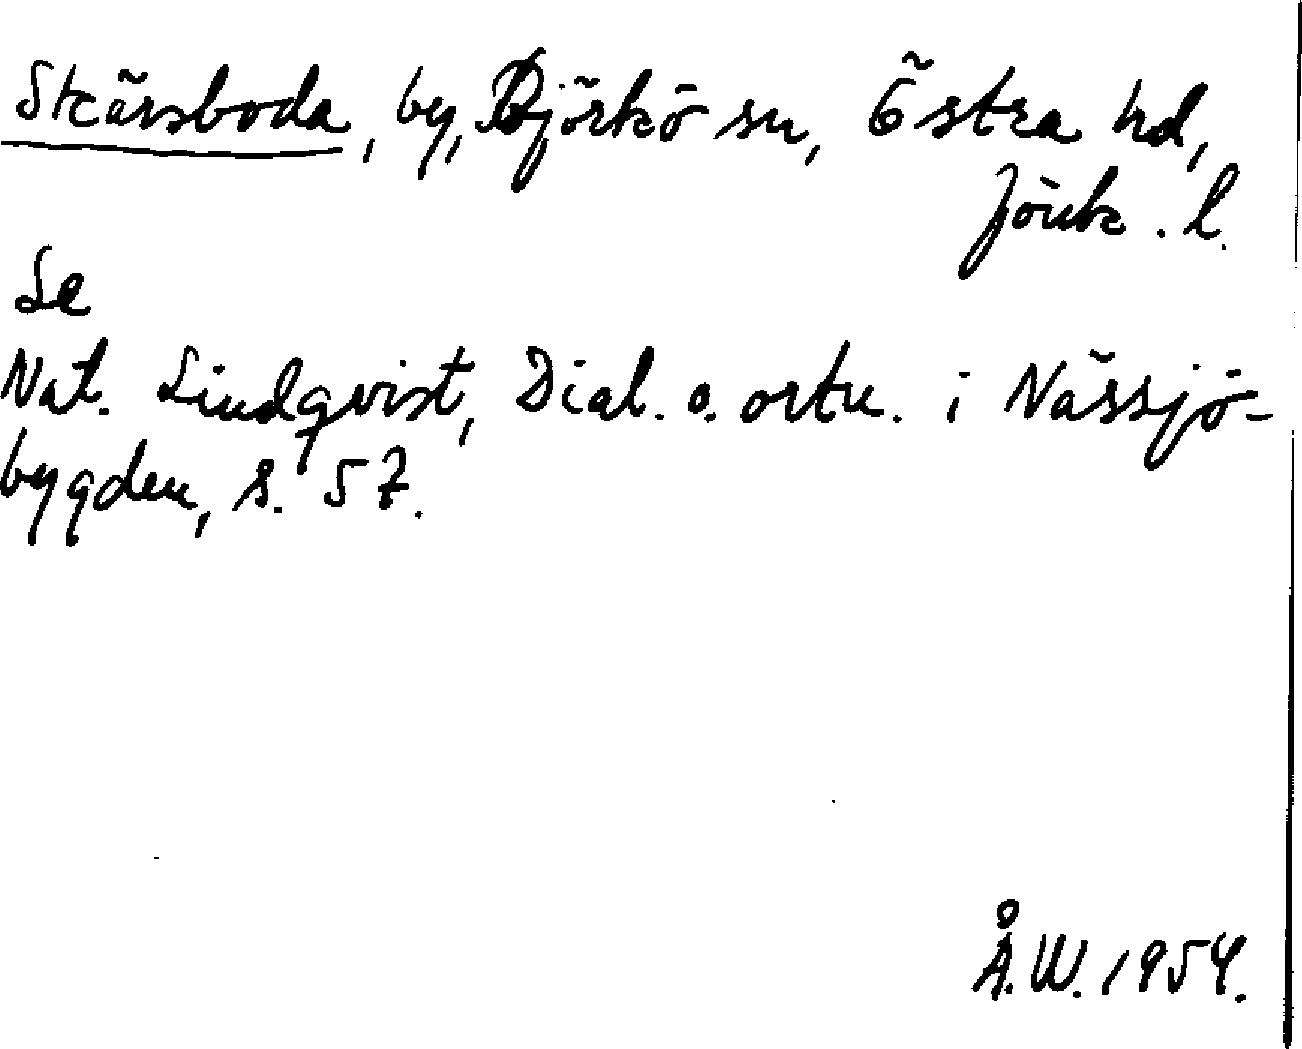 Skärsboda, by, Björkö sn, Östra hd,
Jönk. l.
Se
Nat. Lindqvist, Dial. o. ortn. i Nässjö-
bygden, s. 57.
Å.W. 1954.